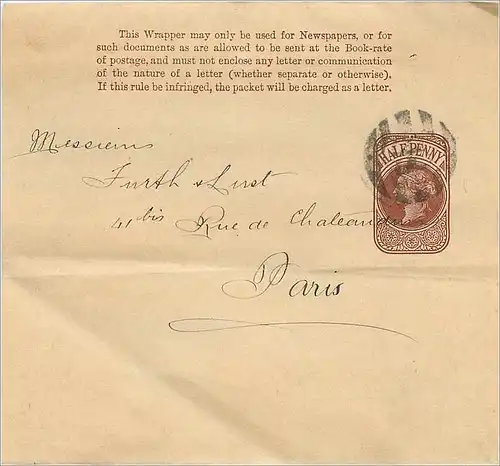 This Wrapper may only be used for Newspapers, or for
such documents as are allowed to be sent at the Book-rate
of postage, and must not enclose any letter or communication
of the nature of a letter (whether separate or otherwise).
If this rule be infringed, the packet will be charged as a letter.
Messieurs
HALFPENNY
Furth & Lust
41 bis Rue de Chateaudun
Paris